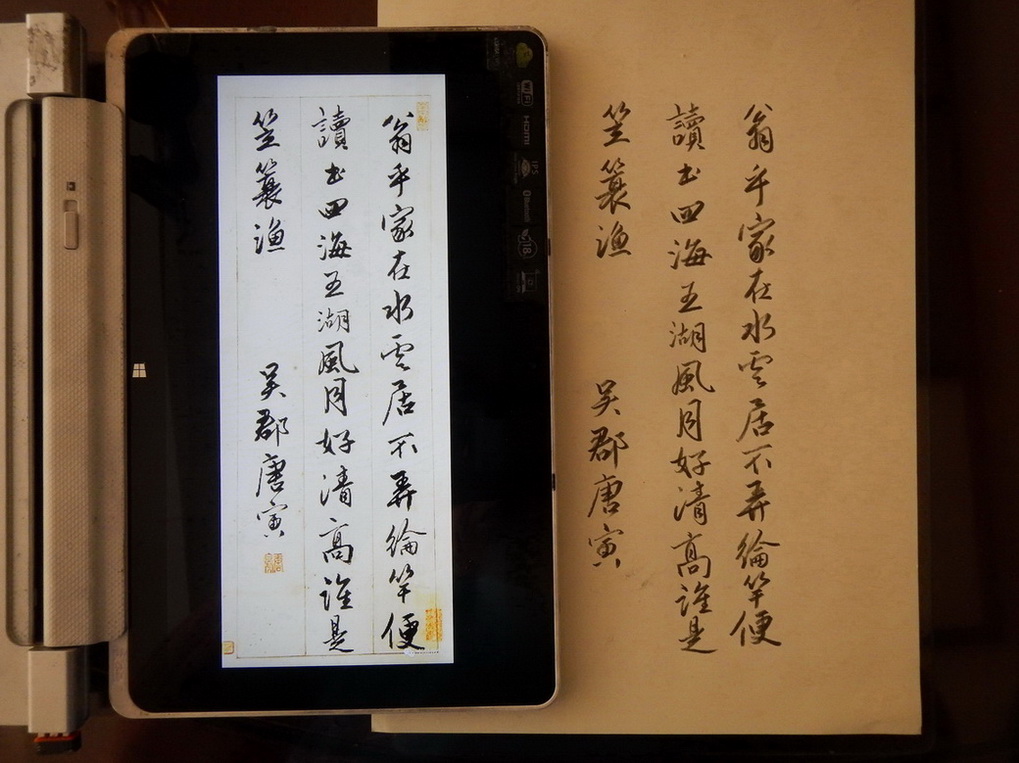 翁乎家在水雲居不弄綸竿便
讀書四海五湖風月好清高誰是
笠簑漁
吳郡唐寅
HDMI
IPS
翁乎家在水雲居不弄綸竿便
讀書四海五湖風月好清高誰是
笠簑漁
吳郡唐寅